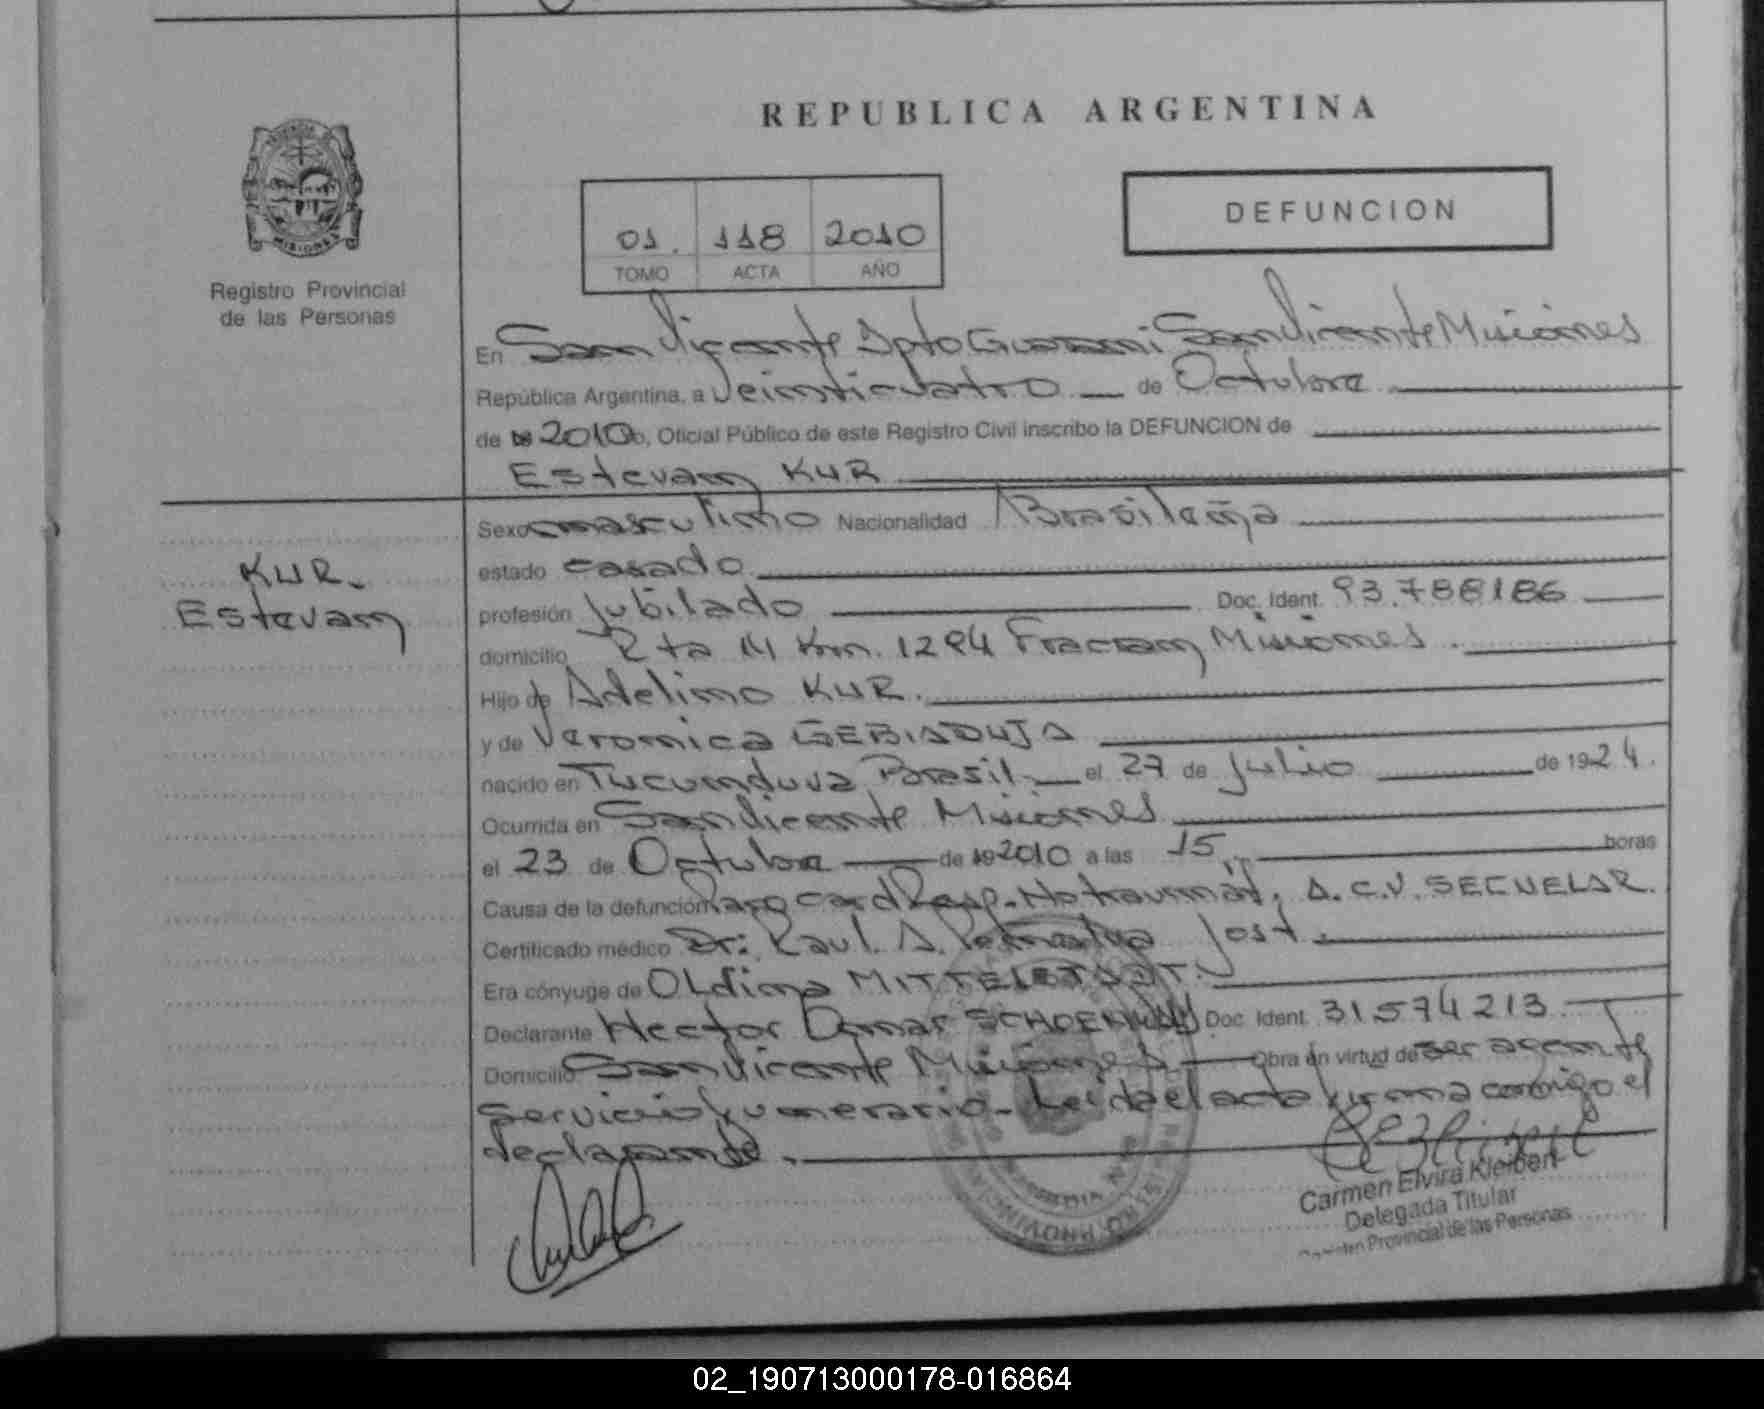 REPUBLICA ARGENTINA
MISIONES
Registro Provincial
de las Personas
01. 118 2010
TOMO ACTA AÑO
DEFUNCION
En San Vicente Dpto Guarani San Vicente Misiones
República Argentina, a Veinticuatro de Octubre
de 2010, Oficial Público de este Registro Civil inscribo la DEFUNCION de
Estevam KUR
KUR.
Estevam
Sexo masculino Nacionalidad Brasileña
estado casado
profesión Jubilado Doc. Ident. 93.788186
domicilio Rta 14 Km. 1294 Fracran Misiones.
Hijo de Adelino KUR.
y de Veronica GEBIADUJA
nacido en Tucunduva Brasil. el 27 de Julio de 1924.
Ocurrida en San Vicente Misiones
el 23 de Octubre de 192010 a las 15 horas
Causa de la defunción Paro Card Resp. No traumat. A.C.V. SECUELAR.
Certificado médico Dr: Raul. A. Jost.
Era cónyuge de Oldina
Declarante Hector Omar Doc. Ident. 31574213
Domicilio San Vicente Misiones Obra en virtud de ser agente
Servicio funerario. Leida el acta firma conmigo el
declarante.
Carmen Elvira Kleiben
Delegada Titular
Provincial de las Personas
02_190713000178-016864